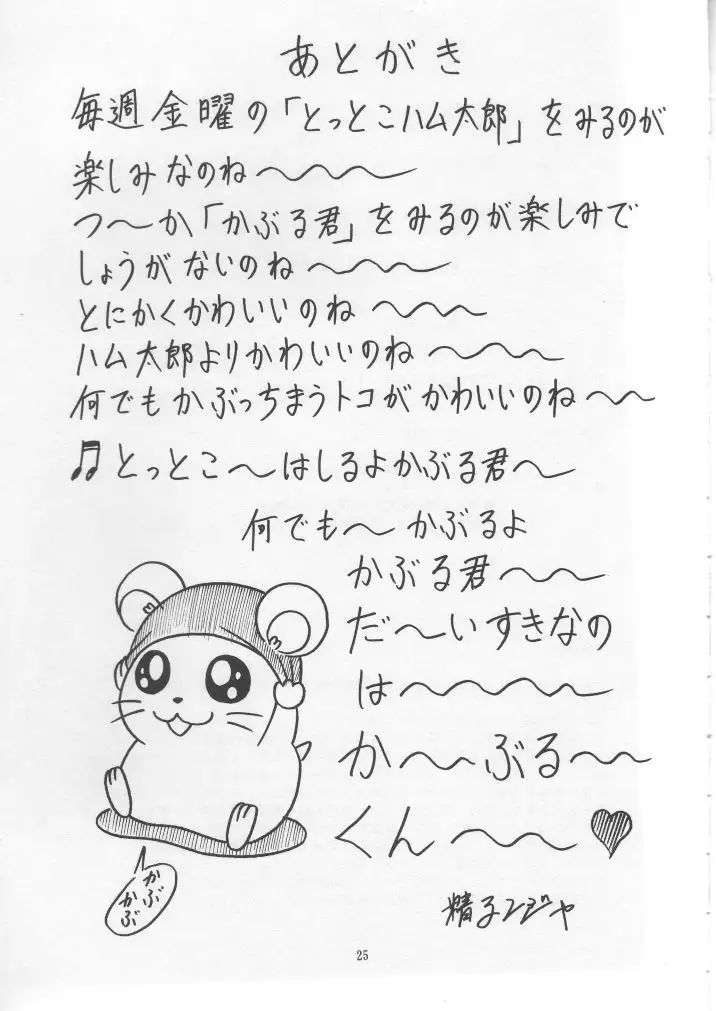 あとがき
毎週金曜の「とっとこハム太郎」をみるのが
楽しみなのね〜〜〜〜
つ〜か「かぶる君」をみるのが楽しみで
しょうがないのね〜〜〜〜
とにかくかわいいのね〜〜〜
ハム太郎よりかわいいのね〜〜〜
何でもかぶっちまうトコがかわいいのね〜〜
♫とっとこ〜はしるよかぶる君〜
何でも〜かぶるよ
かぶる君〜〜
だ〜いすきなの
は〜〜〜〜
か〜〜ぶる〜〜
くん〜〜〜♥
かぶ
かぶ
精子ンジャ
25